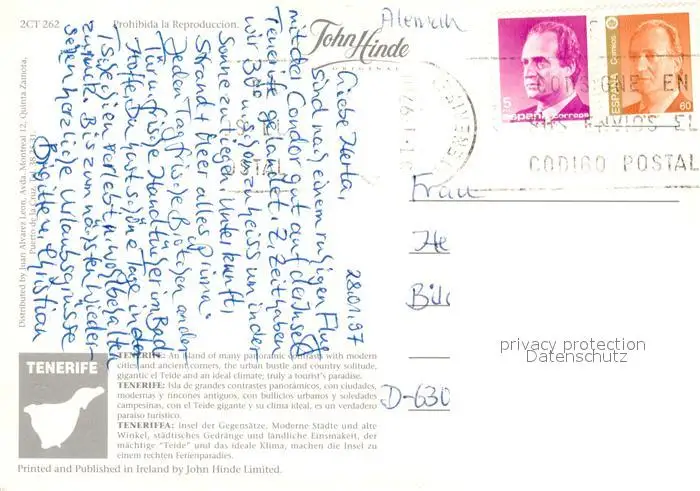 2CT 262
Prohibida la Reproduccion.
John Hinde
ORIGINAL
5
España correos
ESPAÑA Correos
60
CONSIGNE EN
ENVIOS EL
CODIGO POSTAL
28.01.97
Liebe Herta,
sind nach einem ruhigen Flug
mit der Condor gut auf der Insel
Teneriffa gelandet. Z. Zeit haben
wir 30° u. schon zu heiss um in der
Sonne zu liegen. Unterkunft,
Strand + Meer alles prima.
Jeden Tag frische Blo an der
Tür u. frische Handtücher im Bad
Hoffe Du hast schöne Tage in der
zurück. Bis zum nächsten Wieder-
sehen herzliche Urlaubsgrüsse
Brigitte u. Christian
Frau
He
Bil
D-630
privacy protection
Datenschutz
Distributed by Juan Alvarez Leon, Avda. Montreal 12, Quinta Zamora,
Puerto de la Cruz. Tel. 38 26 31
TENERIFE
TENERIFE: An island of many panoramic contrasts with modern
cities and ancient corners, the urban bustle and country solitude,
gigantic el Teide and an ideal climate; truly a tourist's paradise.
TENERIFE: Isla de grandes contrastes panorámicos, con ciudades,
modernas y rincones antiguos, con bullicios urbanos y soledades
campesinas, con el Teide gigante y su clima ideal, es un verdadero
paraiso turistico.
TENERIFFA: Insel der Gegensätze, Moderne Städte und alte
Winkel, städtisches Gedränge und ländliche Einsmakeit, der
mächtige "Teide" und das ideale Klima, machen die Insel zu
einem rechten Ferienparadies.
Printed and Published in Ireland by John Hinde Limited.